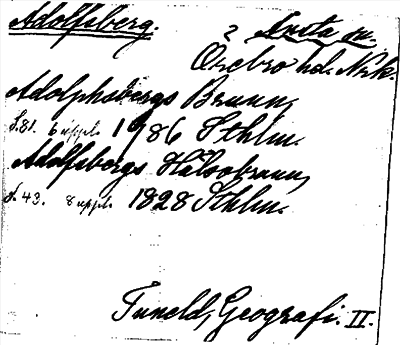 Adolfsberg. ? Knista sn.
Örebro hd. Nrk.
Adolphsbergs Brunn,
s. 81. 6 uppl. 1786 Sthlm.
Adolfsbergs Hälsobrunn,
s. 43. 8 uppl. 1828 Sthlm.
Tuneld, Geografi. II.